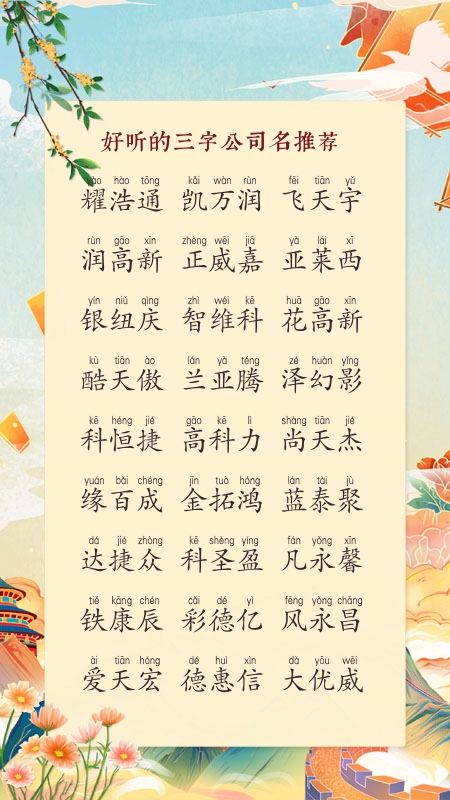 好听的三字公司名推荐
yào hào tōng kǎi wàn rùn fēi tiān yǔ
耀浩通 凯万润 飞天宇
rùn gāo xīn zhèng wēi jiā yà lái xī
润高新 正威嘉 亚莱西
yín niǔ qìng zhì wéi kē huā gāo xīn
银纽庆 智维科 花高新
kù tiān ào lán yà téng zé huàn yǐng
酷天傲 兰亚腾 泽幻影
kē héng jié gāo kē lì shàng tiān jié
科恒捷 高科力 尚天杰
yuán bǎi chéng jīn tuò hóng lán tài jù
缘百成 金拓鸿 蓝泰聚
dá jié zhòng kē shèng yíng fán yǒng xīn
达捷众 科圣盈 凡永馨
tiě kāng chén cǎi dé yì fēng yǒng chāng
铁康辰 彩德亿 风永昌
ài tiān hóng dé huì xìn dà yōu wēi
爱天宏 德惠信 大优威